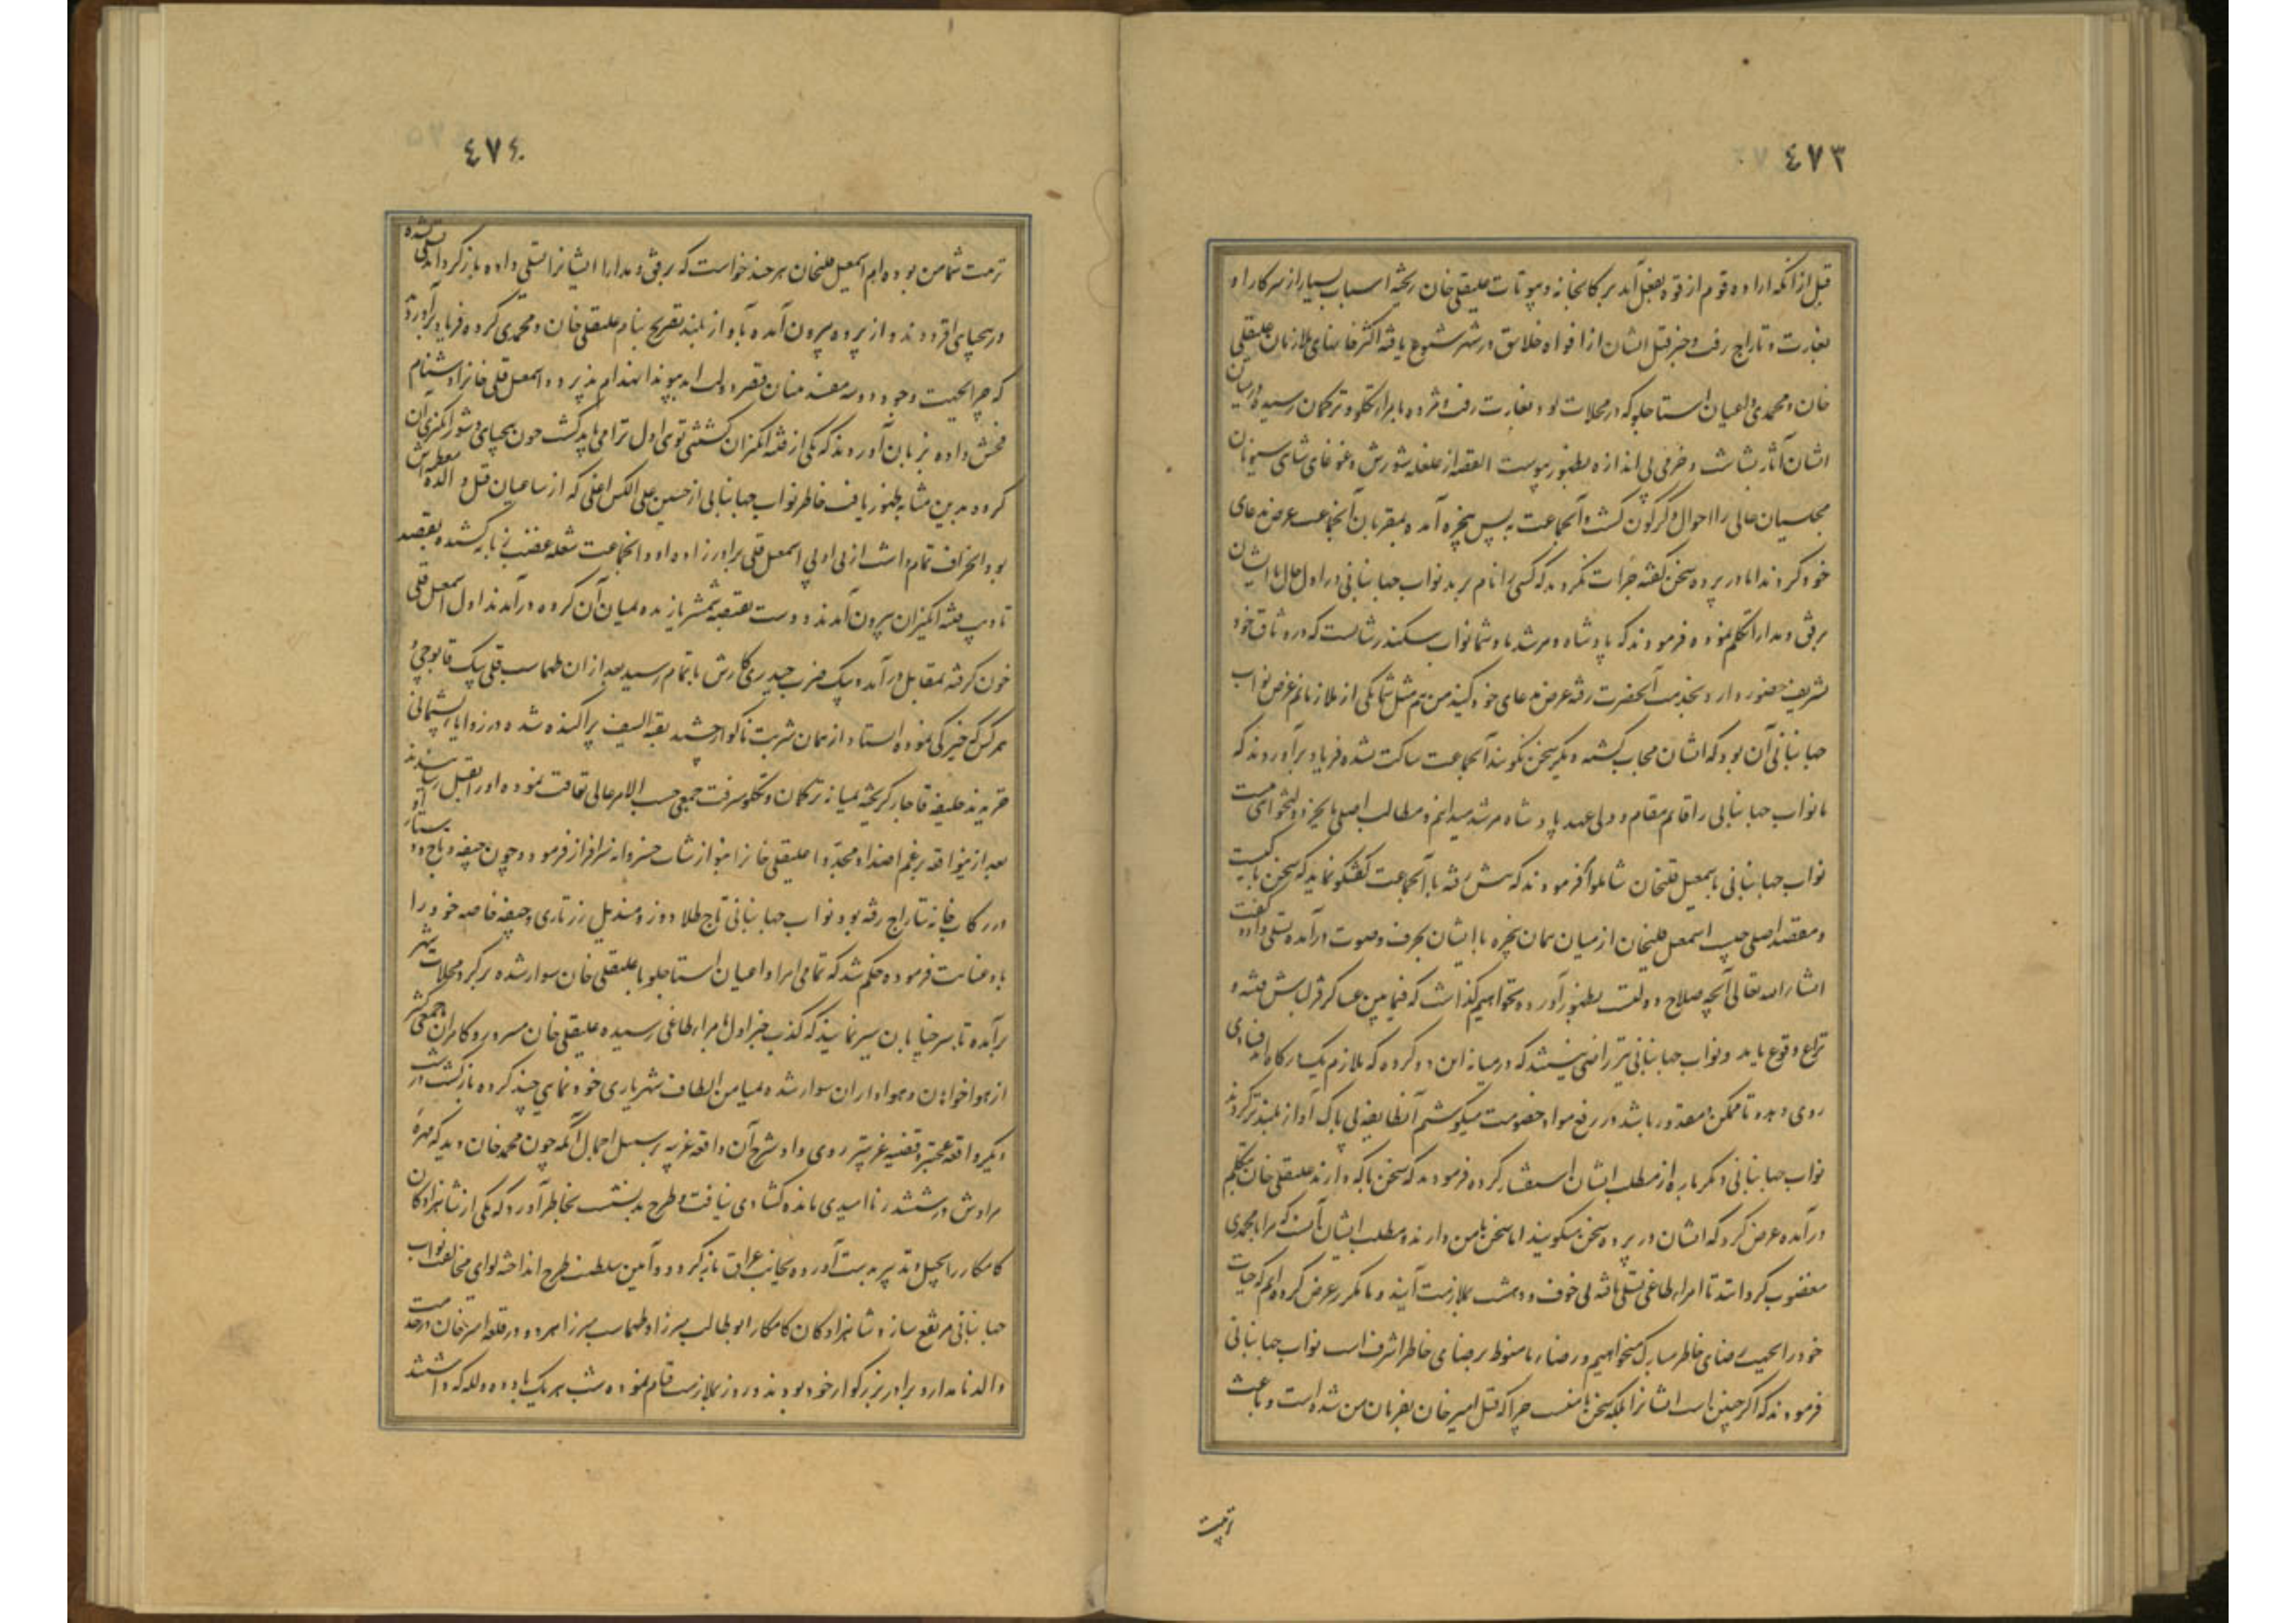 ٤٧٣
قبل از آنکه اراده قوم از قوه بفعل آید بر کارخانه و بیوتات علیقلی خان ریخته اسباب بسیار از سرکار او
بغارت و تاراج رفت و خبر قتل ایشان از افواه خلایق در شهر شیوع یافته اکثر خانهای ملازمان علیقلی
خان و محمدی و اعیان استاجلو که در محلات بود بغارت رفت و مژده بامراء تکلو و ترکمان رسیده در میان
ایشان آثار بشاشت و خرمی بی اندازه بظهور پیوست القصه از غلغله شورش و غوغای شاهی سیونان
مجلسیان عالی را احوال دگرگون گشت و آنجماعت به پس پنجره آمده بمقربان آنجماعت عرض مدعای
خود کردند اما در پرده سخن گفته جرأت نکردند که کسی را نام برند نواب جهانبانی در اول حال با ایشان
برفق و مدارا تکلم نموده فرمودند که پادشاه و مرشد ما و شما نواب سکندر شانست که در وثاق خود
تشریف حضور دارد بخدمت آنحضرت رفته عرض مدعای خود کنید من هم مثل شما یکی از ملازمانم غرض نواب
جهانبانی آن بود که ایشان مجاب گشته دیگر سخن نگویند آنجماعت ساکت نشده فریاد برآوردند که
ما نواب جهانبانی را قایم مقام و ولی عهد پادشاه مرشد میدانیم و مطالب اصلی ما بجز دولتخواهی نیست
نواب جهانبانی باسمعیل قلیخان شاملو فرمودند که پیش رفته با آنجماعت گفتگو نماید که سخن با کیست
و مقصد اصلی چیست اسمعیل قلیخان از میان همان پنجره با ایشان بحرف و صوت درآمده تسلی داده گفت
انشاء الله تعالی آنچه صلاح دولت بظهور آورده نخواهیم گذاشت که فیمابین عساکر قزلباش فتنه و
نزاع وقوع یابد و نواب جهانبانی نیز راضی نیستند که در میانه این دو گروه که ملازم یک سرکارند فسادی
روی دهد تا ممکن و مقدور باشد در رفع مواد خصومت میکوشیم آنطایفه بی باک آواز بلندتر کردند
نواب جهانبانی دیگر باره از مطلب ایشان استفسار کرده فرمودند که سخن با که دارند علیقلی خان بتکلم
درآمده عرض کرد که ایشان در پرده سخن میگویند اما سخن با من دارند و مطلب ایشان آنست که مرا با محمدی
مغضوب گردانند تا امراء طاغی تسلی یافته بی خوف و دهشت بملازمت آیند و ما مکرر عرض کرده ایم که حیات
خود را بجهت رضای خاطر مبارک میخواهیم و رضاء ما منوط برضای خاطر اشرف است نواب جهانبانی
فرمودند که اگر چنین است ایشانرا بلکه سخن با منست چرا که قتل امیر خان بفرمان من شده است و باعث
تربیت
٤٧٤
تربیت شما من بوده ام اسمعیل قلیخان هر چند خواست که برفق و مدارا ایشانرا تسلی داده بازگرداند تسلی نشده
در بیحیایی افزودند و از پرده بیرون آمده بآواز بلند تصریح بنام علیقلی خان و محمدی کرده فریاد برآوردند
که چرا بجهت وجود دو سه مفسد بنیان قصر دولت ابد پیوند انهدام پذیرد و اسمعیل قلی خانرا دشنام
فحش داده بر زبان آوردند که یکی از فتنه انگیزان کشتنی توی اول ترا می باید کشت چون بیحیایی و شورانگیزی آن
گروه بدین مثابه بظهور یافت خاطر نواب جهانبانی از حسین علی الکس اغلی که از ساعیان قتل والده معظمه اش
بود انحراف تمام داشت از بی ادبی اسمعیل قلی برادرزاده او و آنجماعت شعله غضب زبانه کشیده بقصد
تادیب فتنه انگیزان بیرون آمدند و دست بقبضه شمشیر یازیده بمیان آن گروه درآمدند اول اسمعیل قلی
خون گرفته بمقابل درآمده بیک ضرب حیدری کارش باتمام رسید بعد از آن طهماسب قلی بیک قاپوچی و
هر کس که خیرگی نموده ایستاد از همان شربت ناگوار چشید بقیة السیف پراکنده شده در زوایا پشیمانی
خزیدند خلیفه قاجار گریخته بمیانه ترکمان و تکلو میرفت جمعی حسب الامر عالی تعاقب نموده او را بقتل رسانیدند
بعد از این واقعه برغم اضداد مجددا علیقلی خانرا بنوازشات خسروانه سرافراز فرمود و چون جیقه و تاج و دستار او
در رکاب خانه بتاراج رفته بود نواب جهانبانی تاج طلادوز و مندیل زرتاری و جیقه خاصه خود را
باو عنایت فرموده حکم شد که تمامی امرا و اعیان استاجلو با علیقلی خان سوار شده بر گرد محلات شهر
برآمده تا سر خیابان سیر نمایند که کذب خبر اول بامراء طاغی رسیده علیقلی خان مسرور و کامران با جمعی کثیر
از هواخواهان و هواداران سوار شده بمیامن الطاف شهریاری خودنمایی چند کرده بازگشت در
دیگر واقعه عجیبتر و قضیه غریبتر روی داد و شرح آن واقعه غریبه بر سبیل اجمال آنکه چون محمد خان دید که مهره
مرادش در ششدر ناامیدی مانده گشادی نیافت و طرح بد نشست بخاطر آورد که یکی از شاهزادگان
کامکار را بحیل و تدبیر بدست آورده بجانب عراق بازگردد و آیین سلطنت طرح انداخته لوای مخالفت نواب
جهانبانی مرتفع سازد شاهزادگان کامکار ابوطالب میرزا و طهماسب میرزا هر دو در قلعه امیر خان در خدمت
والد نامدار و برادر بزرگوار خود بودند و روز بملازمت قیام نموده شب هر یک با دده و لله که داشتند